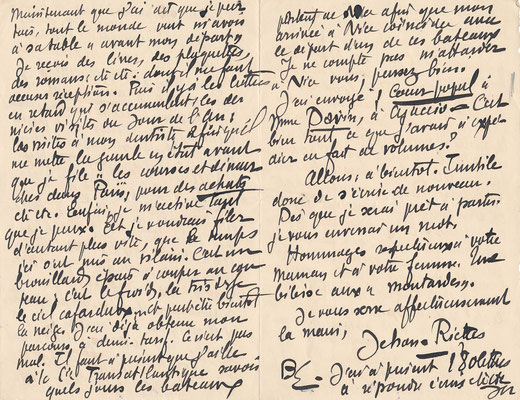 Maintenant que j'ai dit que je par
tais, tout le monde veut m'avoir
à sa table "avant mon départ".
Je reçois des livres, des plaquettes,
des romans etc etc: dont il me faut
accuser réception. Puis il y a les lettres
en retard qui s'accumulent, les der
nières visites du Jour de l'An:
les visites à mon dentiste afin qu'il
me mette la gueule en état avant
que je file & les courses et dîners
chez dans Paris, pour des achats
etc etc. Enfin, je m'active tant
que je peux. Et je voudrais filer
d'autant plus vite, que le temps
ici s'est mis au vilain. C'est un
brouillard épais à couper au cou
teau; c'est le froid, la tristesse
le ciel cafardeux et peut-être bientôt
la neige. J'ai déjà obtenu mon
parcours à demi-tarif. Ce n'est pas
mal. Il faut à présent que j'aille
à la Cie Transatlantique savoir
quels jours les bateaux
partent de Nice afin que mon
arrivée à Nice coïncide avec
le départ d'un de ces bateaux
Je ne compte pas m'attarder
à Nice vous pensez bien.
J'ai envoyé 1 Cœur popul à
Mme Davin, à Ajaccio — C'est
bien tout ce que j'avais à expé
dier en fait de volumes?
Allons, à bientôt. Inutile
donc de s'écrire de nouveau.
Dès que je serai prêt à partir
je vous enverrai un mot.
Hommages respectueux à votre
Maman et à votre femme. Une
bibise aux "moutardes".
Je vous serre affectueusement
la main,
Jehan-Rictus
J'ai à présent 18 lettres
à répondre